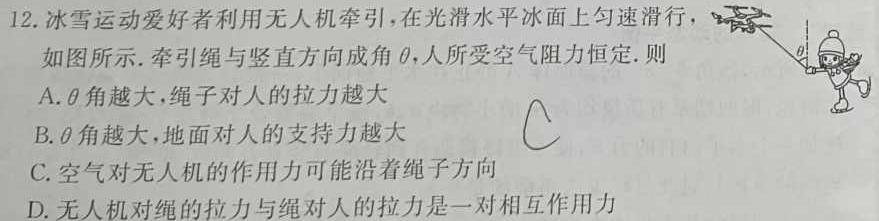 12. 冰雪运动爱好者利用无人机牵引,在光滑水平冰面上匀速滑行,
如图所示. 牵引绳与竖直方向成角θ,人所受空气阻力恒定. 则
θ
A. θ角越大,绳子对人的拉力越大
B. θ角越大,地面对人的支持力越大
C. 空气对无人机的作用力可能沿着绳子方向
D. 无人机对绳的拉力与绳对人的拉力是一对相互作用力